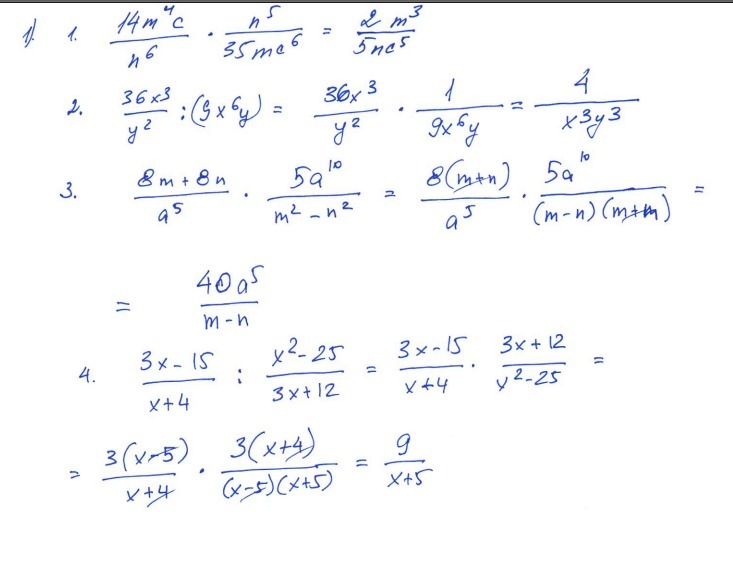 1) 1. 14m⁴c/n⁶ · n⁵/35mc⁶ = 2m³/5nc⁵
2. 36x³/y² : (9x⁶y) = 36x³/y² · 1/9x⁶y = 4/x³y³
3. 8m+8n/a⁵ · 5a¹⁰/m²-n² = 8(m+n)/a⁵ · 5a¹⁰/(m-n)(m+n) =
= 40a⁵/m-n
4. 3x-15/x+4 : x²-25/3x+12 = 3x-15/x+4 · 3x+12/x²-25 =
= 3(x-5)/x+4 · 3(x+4)/(x-5)(x+5) = 9/x+5